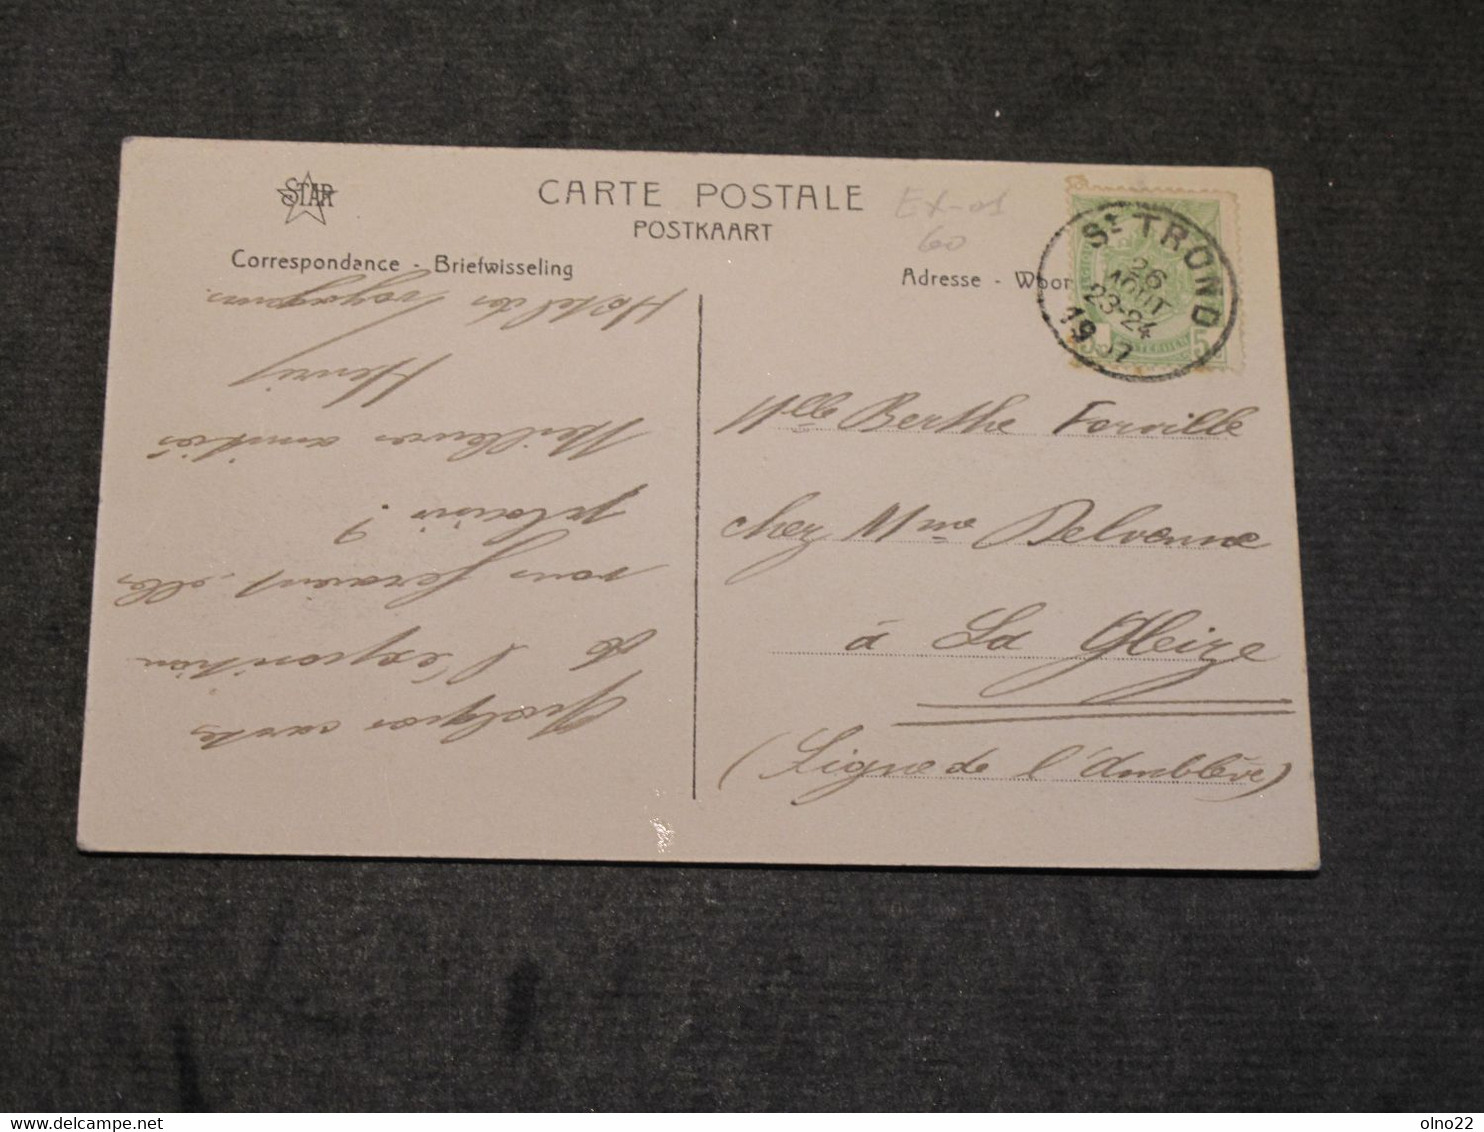 STAR
CARTE POSTALE
POSTKAART
Ex-os
60
Correspondance - Briefwisseling
Adresse - Woon
St TROND
26
AOUT
23-24
1907
5
Quelques cartes
de l'exposition
vous feraient-elles
plaisir ?
Meilleures amitiés
Henri
Hotel des Voyageurs.
Mlle Berthe Forville
chez Mme Delvenne
à La Gleize
(Ligne de l'Amblève)
olno22